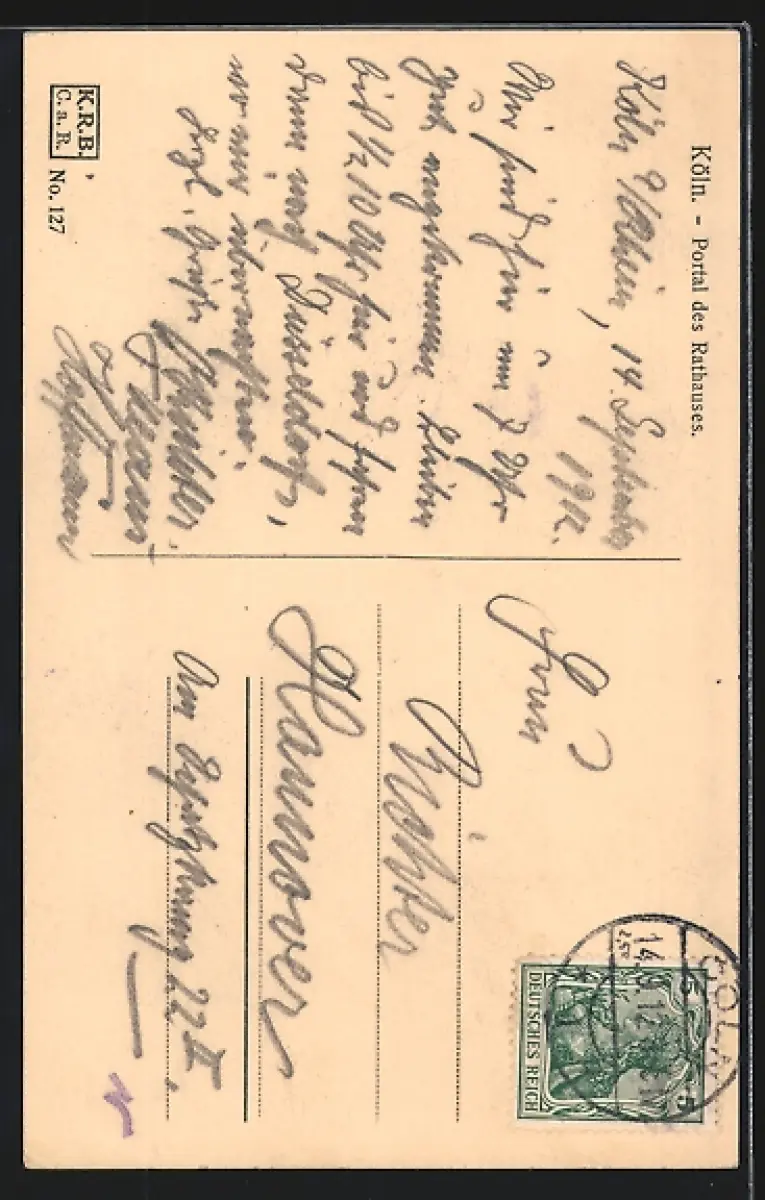 Köln. - Portal des Rathauses.
Köln a/Rhein, 14. September
1912.
Wir sind hier um 7 Uhr
gut angekommen. bleiben
bis ½ 10 Uhr hier und fahren
dann nach Düsseldorf,
wo wir übernachten.
Hrzl. Grüße
Hoffmann
K.R.B.
C.a.R. No. 127
Frau
Köhler
Hannover
Am 22 II.
CÖLN
14.9.12
DEUTSCHES REICH
5 5